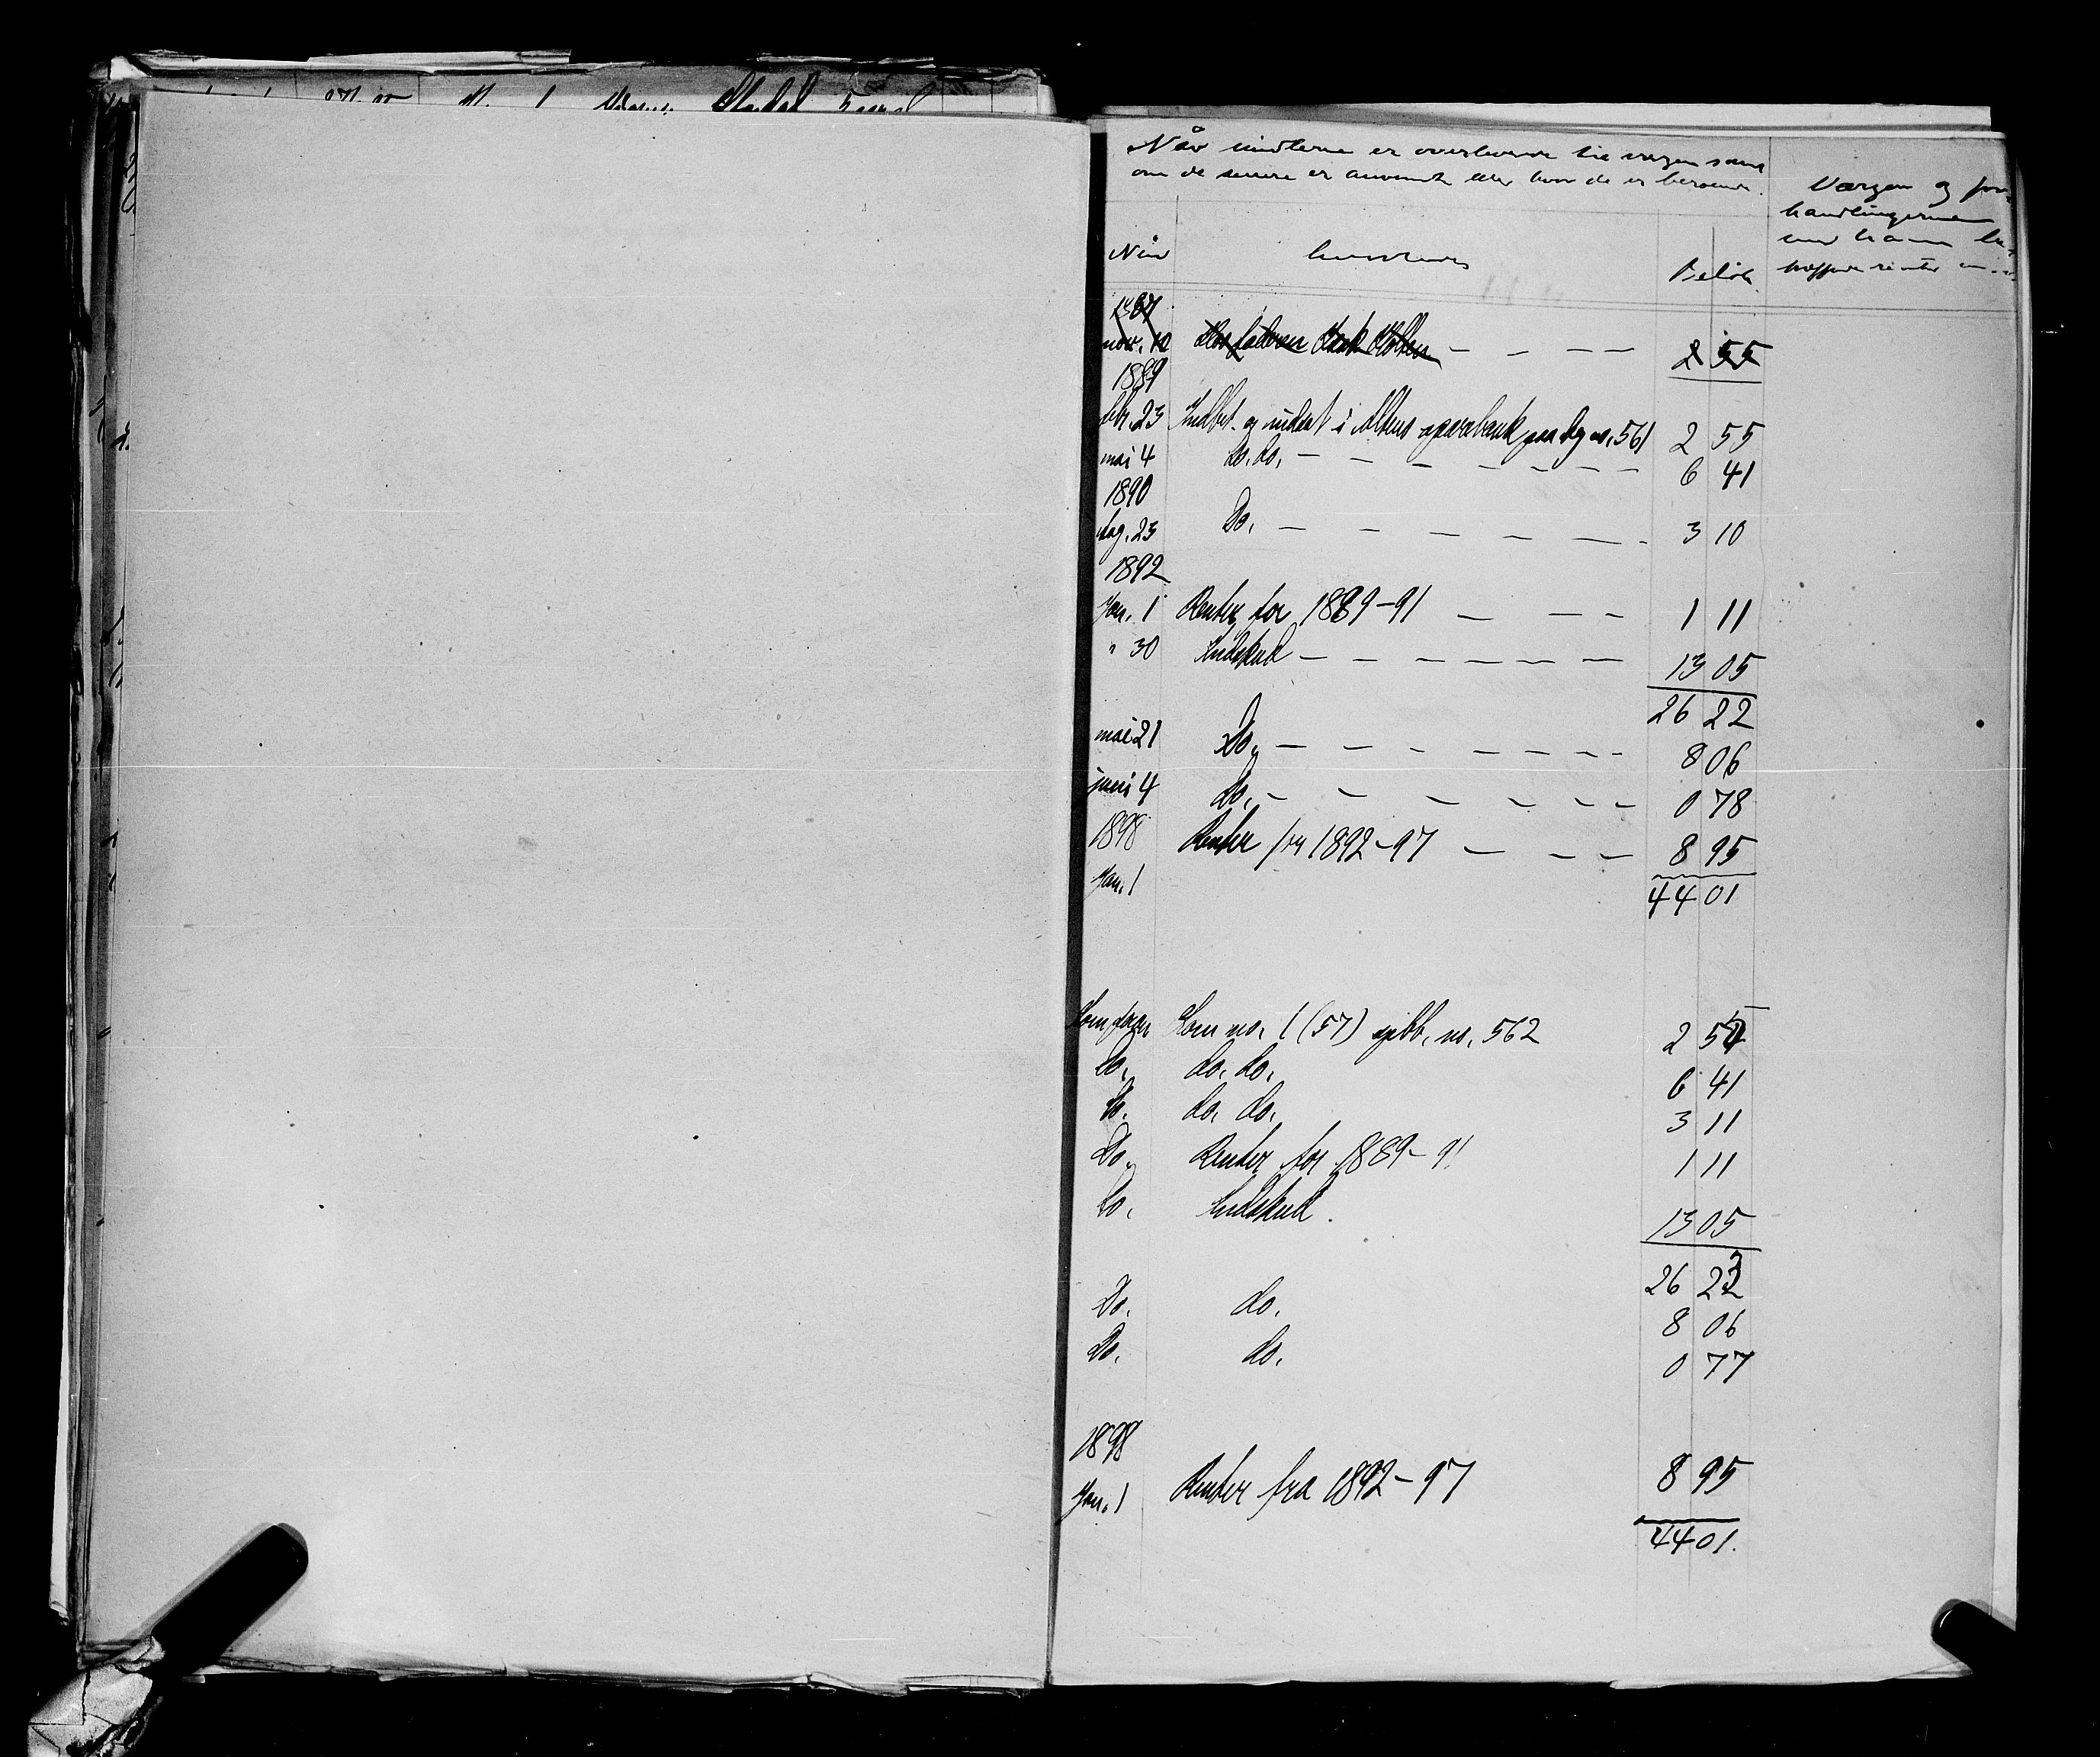 Når midlerne er overleverede til værgen samt
om de senere er anvendt eller hvor de er beroende.
Værgen og for-
handlingerne
med ham
Når
Beløb
1887
nov. 12 Hos faderen 2 55
1889
febr. 23 Indbet. og indsat i Altens sparebank paa bog no. 561 2 55
mai 4 do. do. — — — — — — — 6 41
1890
Aug. 23 Do. — — — — — — 3 10
1892
Jan. 1 Renter for 1889-91 — — — 1 11
" 30 Indskud — — — — — — 13 05
26 22
mai 21 Do. — — — — — — — 8 06
juni 4 do. — — — — — — 0 78
1898 Renter fra 1892-97 — — — 8 95
Jan. 1
44 01
Som foran Som no. 1 (57) spbb. no. 562 2 55
Do. do. do. 6 41
Do. do. do. 3 11
Do. Renter for 1889-91 1 11
Do. Indskud. 13 05
26 23
Do. do. 8 06
Do. do. 0 77
1898
Jan. 1 Renter fra 1892-97 8 95
44 01.